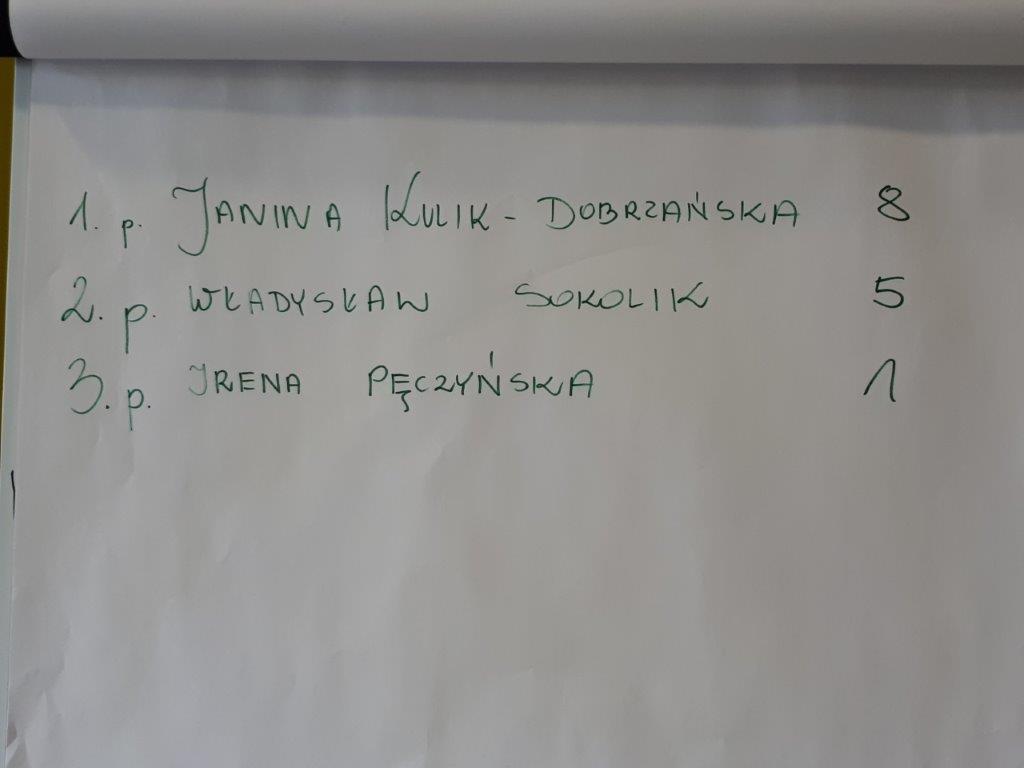 1. p. JANINA KULIK - DOBRZAŃSKA 8
2. p. WŁADYSŁAW SOKOLIK 5
3. p. IRENA PĘCZYŃSKA 1